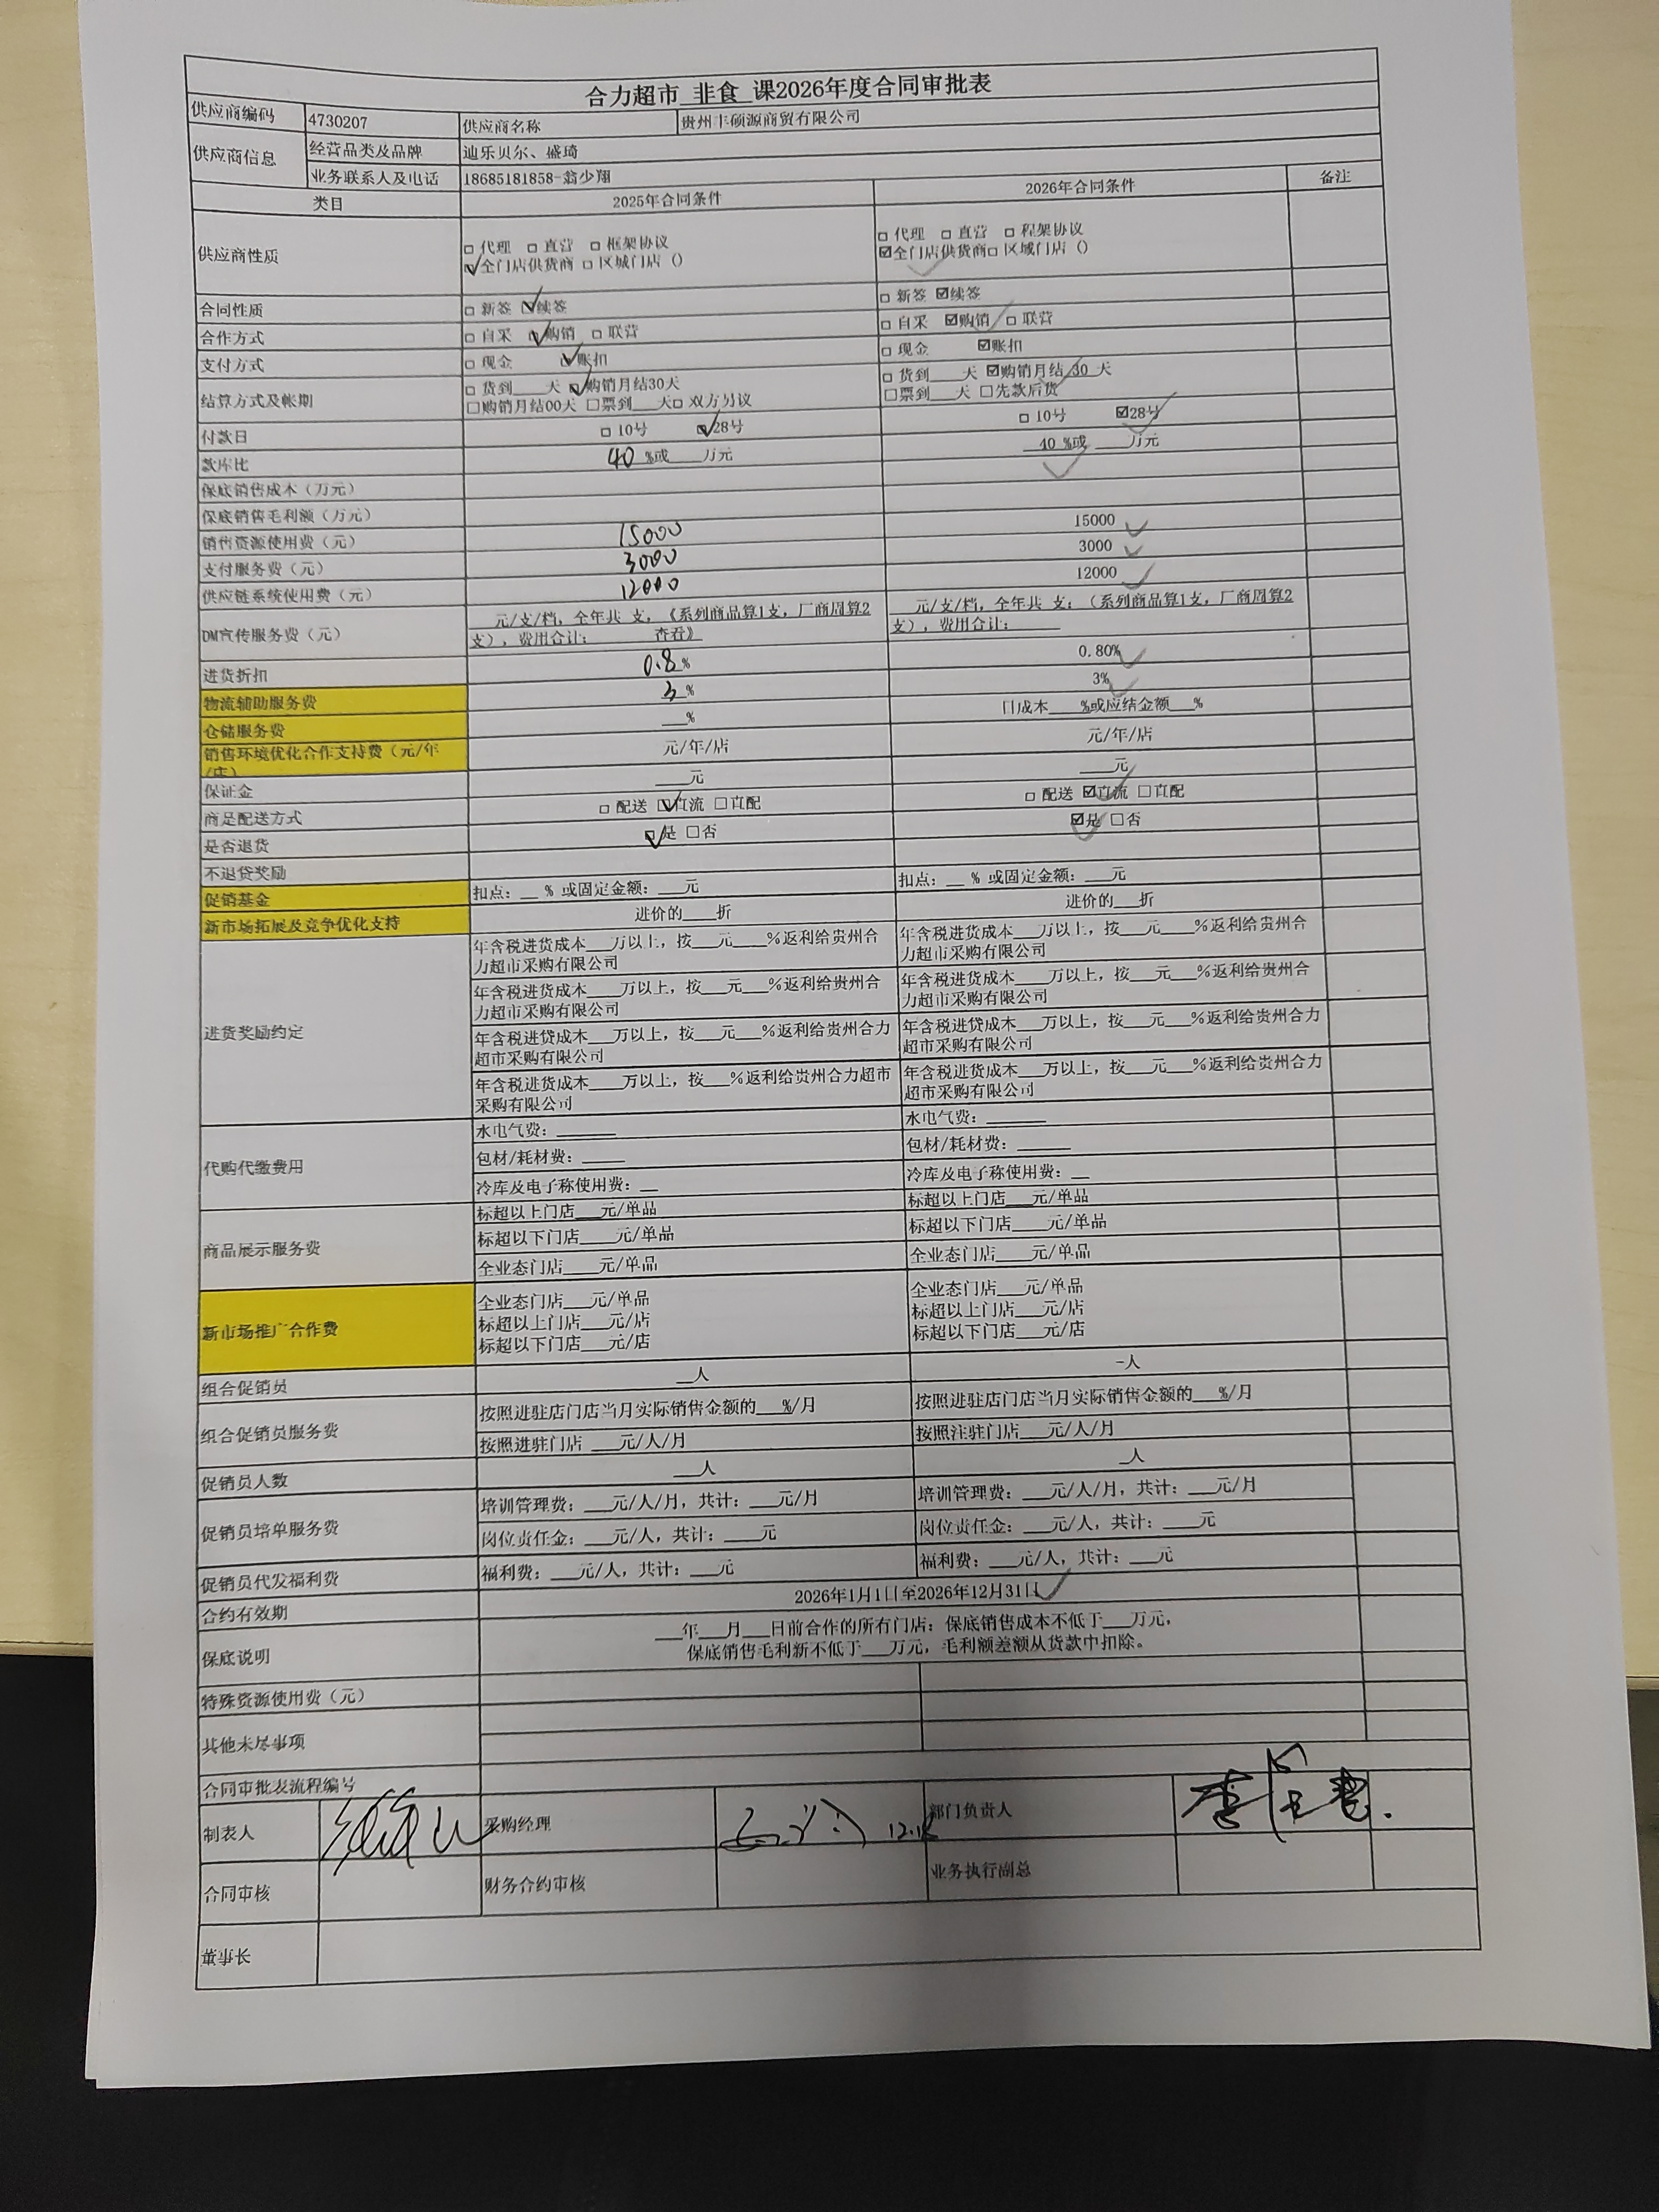 合力超市 非食 课2026年度合同审批表
供应商编码 4730207 供应商名称 贵州丰硕源商贸有限公司
供应商信息 经营品类及品牌 迪乐贝尔、盛琦
业务联系人及电话 18685181858-翁少翔
类目 2025年合同条件 2026年合同条件 备注
供应商性质
□ 代理 □ 直营 □ 框架协议 □ 代理 □ 直营 □ 程架协议
☑全门店供货商 □ 区域门店 () ☑全门店供货商□ 区域门店 ()
合同性质 □ 新签 ☑续签 □ 新签 ☑续签
合作方式 □ 自采 ☑购销 □ 联营 □ 自采 ☑购销 □ 联营
支付方式 □ 现金 ☑账扣 □ 现金 ☑账扣
结算方式及帐期
□ 货到___天 ☑购销月结30天 □ 货到___天 ☑购销月结 30 天
□购销月结00天 □票到___天□ 双方另议 □票到___天 □先款后货
付款日 □ 10号 ☑28号 □ 10号 ☑28号
款库比 40 %或___万元 40 %或___万元
保底销售成本（万元）
保底销售毛利额（万元）
销售资源使用费（元） 15000 15000
支付服务费（元） 3000 3000
供应链系统使用费（元） 12000 12000
DM宣传服务费（元）
___元/支/档，全年共 支，《系列商品算1支，厂商周算2 ___元/支/档，全年共 支；（系列商品算1支，厂商周算2
支），费用合计：______杏君》 支），费用合计：______
进货折扣 0.8 % 0.80%
物流辅助服务费 3 % 3%
仓储服务费 __% 日成本___%或应结金额___%
销售环境优化合作支持费（元/年 元/年/店 元/年/店
/店）
保证金 ___元 ___元
商品配送方式 □ 配送 ☑直流 □直配 □ 配送 ☑直流 □直配
是否退货 ☑是 □否 ☑是 □否
不退贷奖励
促销基金 扣点：__ % 或固定金额：___元 扣点：__ % 或固定金额：___元
新市场拓展及竞争优化支持 进价的___折 进价的___折
进货奖励约定
年含税进货成本___万以上，按___元____%返利给贵州合 年含税进货成本___万以上，按___元____%返利给贵州合
力超市采购有限公司 力超市采购有限公司
年含税进货成本____万以上，按___元___%返利给贵州合 年含税进货成本____万以上，按___元___%返利给贵州合
力超市采购有限公司 力超市采购有限公司
年含税进贷成本___万以上，按___元___%返利给贵州合力 年含税进贷成本___万以上，按___元___%返利给贵州合力
超市采购有限公司 超市采购有限公司
年含税进货成本____万以上，按___%返利给贵州合力超市 年含税进货成本___万以上，按___元___%返利给贵州合力
采购有限公司 超市采购有限公司
代购代缴费用
水电气费：______ 水电气费：______
包材/耗材费：____ 包材/耗材费：_____
冷库及电子称使用费：__ 冷库及电子称使用费：__
商品展示服务费
标超以上门店___元/单品 标超以上门店___元/单品
标超以下门店____元/单品 标超以下门店____元/单品
全业态门店____元/单品 全业态门店____元/单品
新市场推广合作费
全业态门店___元/单品 全业态门店___元/单品
标超以上门店___元/店 标超以上门店___元/店
标超以下门店___元/店 标超以下门店___元/店
组合促销员 __人 -人
组合促销员服务费
按照进驻店门店当月实际销售金额的___%/月 按照进驻店门店当月实际销售金额的___%/月
按照进驻门店 ___元/人/月 按照注驻门店___元/人/月
促销员人数 ___人 _人
促销员培单服务费
培训管理费：___元/人/月，共计：___元/月 培训管理费：___元/人/月，共计：___元/月
岗位责任金：___元/人，共计：____元 岗位责任金：___元/人，共计：____元
促销员代发福利费 福利费：___元/人，共计：___元 福利费：___元/人，共计：___元
合约有效期 2026年1月1日至2026年12月31日
保底说明
___年___月___日前合作的所有门店：保底销售成本不低于___万元，
保底销售毛利新不低于___万元，毛利额差额从货款中扣除。
特殊资源使用费（元）
其他未尽事项
合同审批表流程编号
制表人 采购经理 部门负责人
合同审核 财务合约审核 业务执行副总
董事长